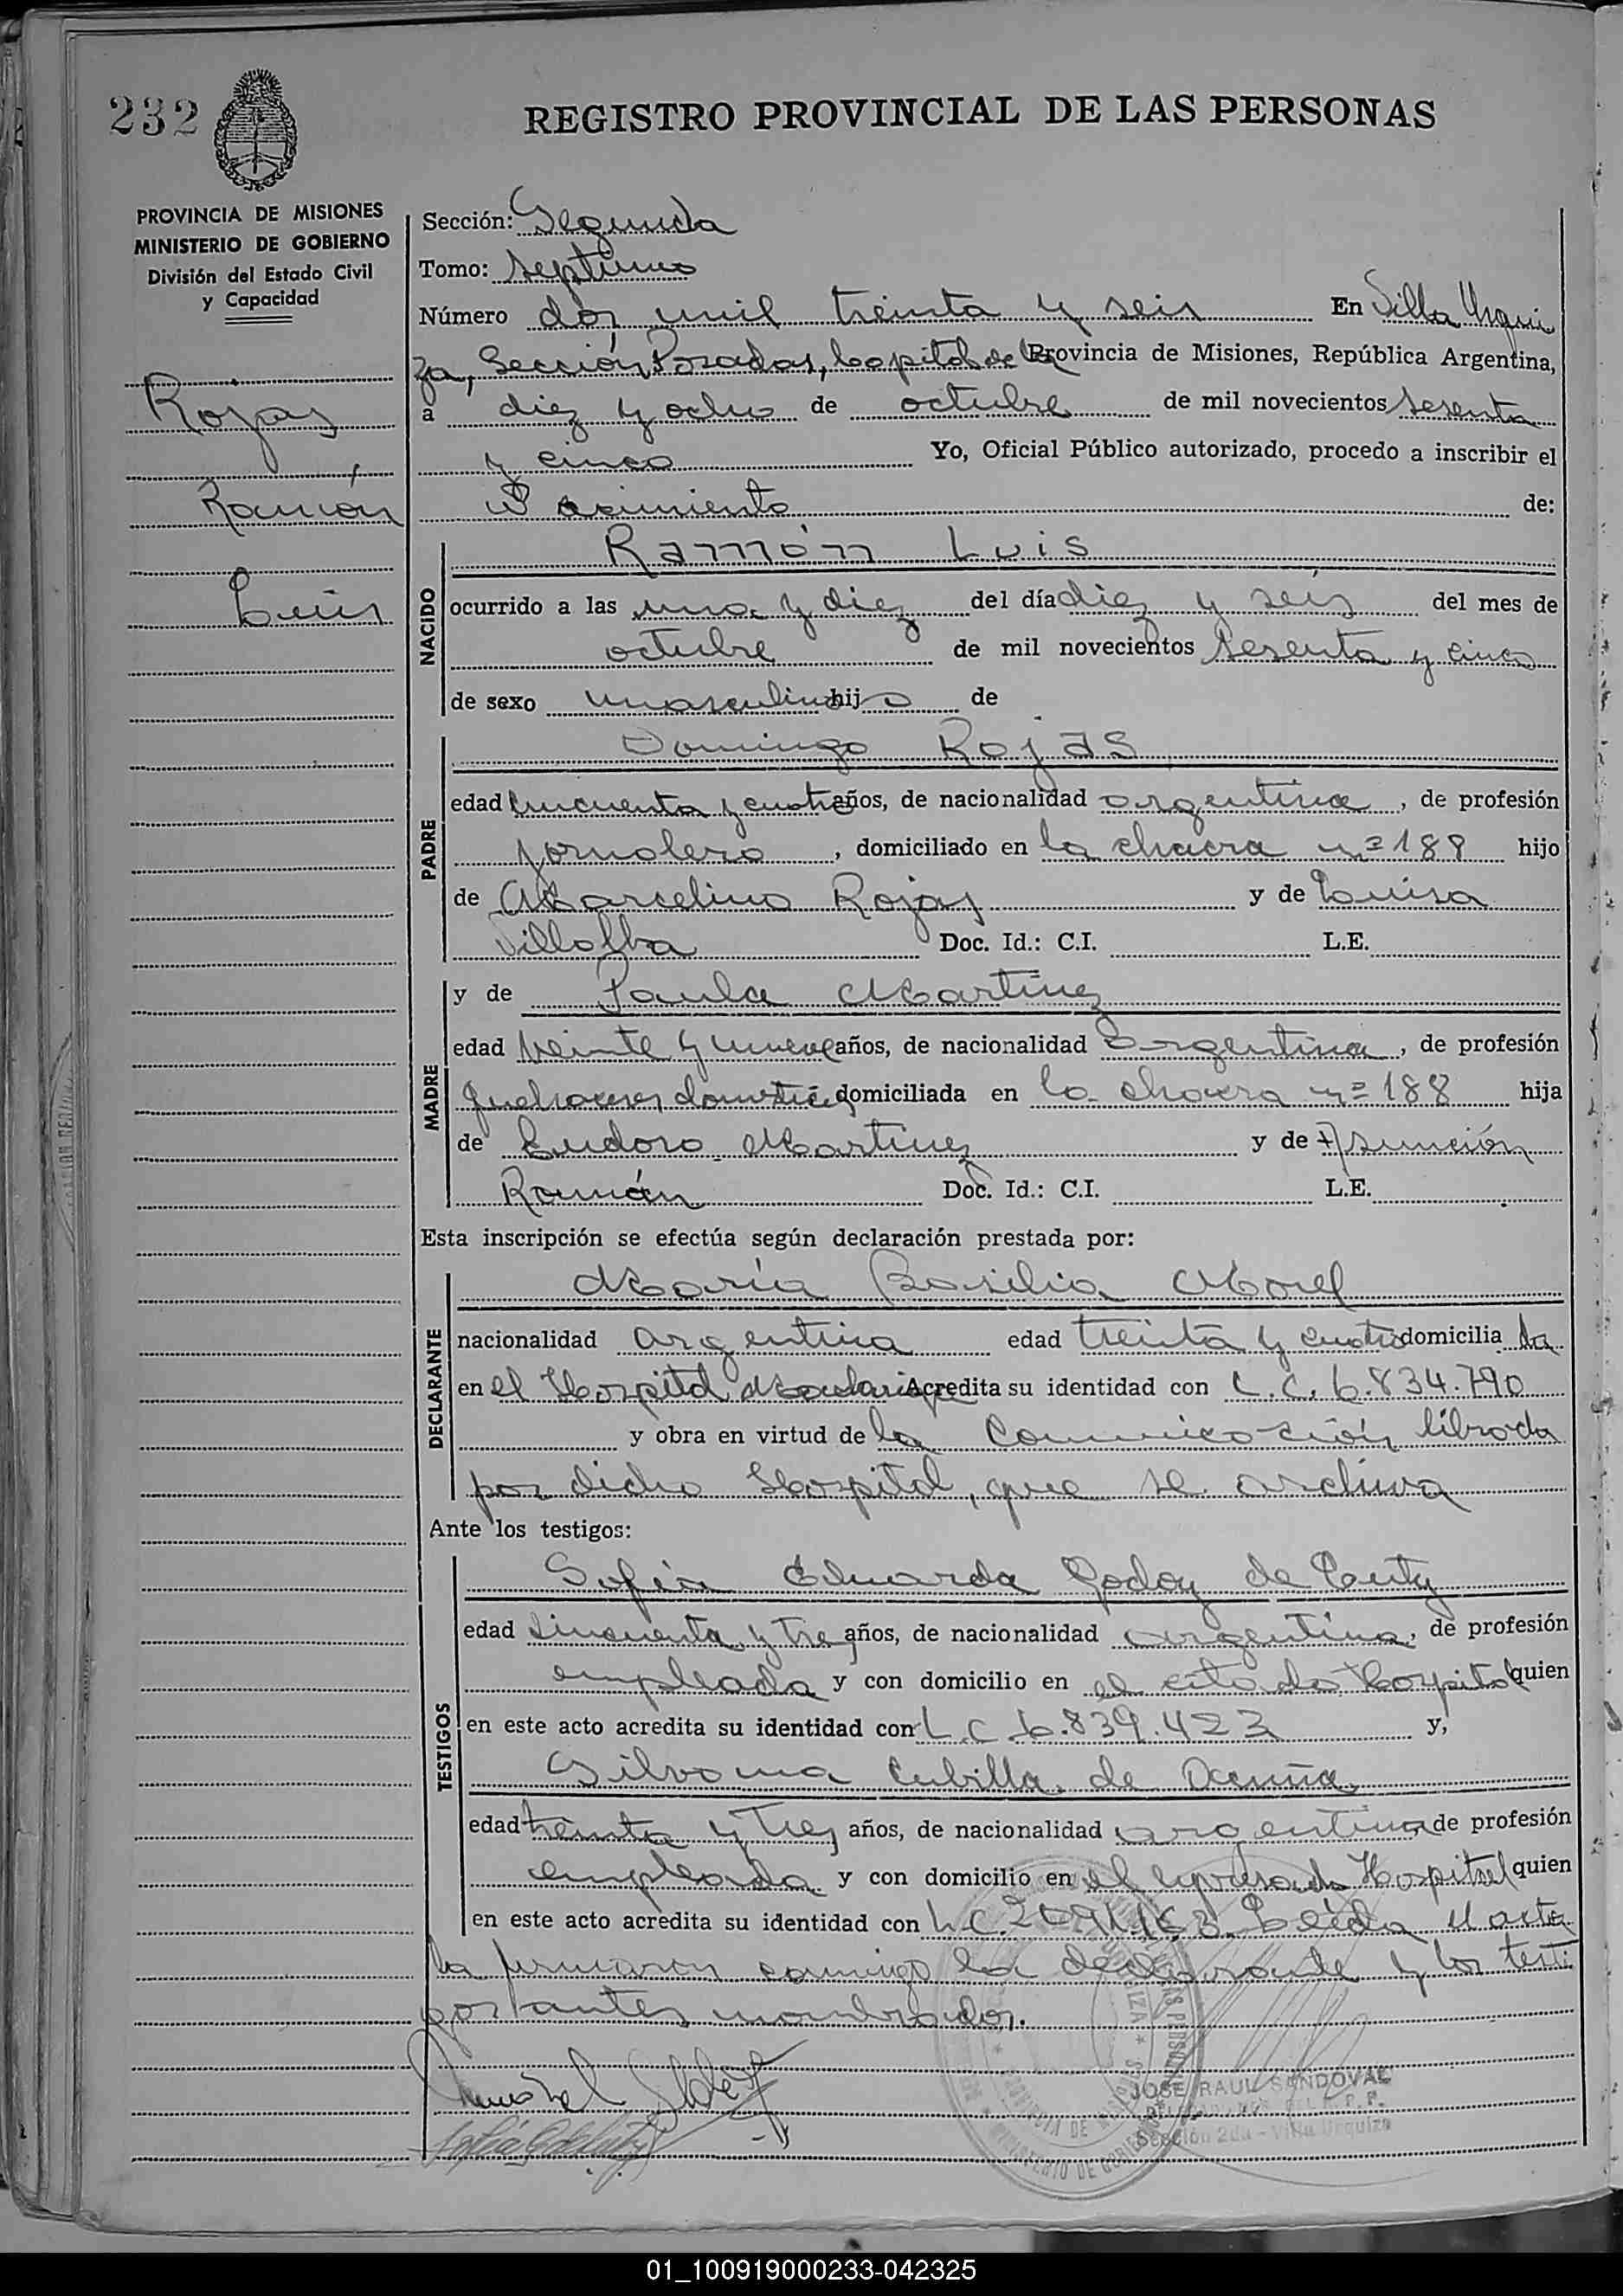 232
REGISTRO PROVINCIAL DE LAS PERSONAS
PROVINCIA DE MISIONES
MINISTERIO DE GOBIERNO
División del Estado Civil
y Capacidad
Rojas
Ramón
Luis
Sección: Segunda
Tomo: septimo
Número dos mil treinta y seis En Villa Urqui
za, Sección Posadas, Capital de la Provincia de Misiones, República Argentina,
a diez y ocho de octubre de mil novecientos sesenta
y cinco Yo, Oficial Público autorizado, procedo a inscribir el
Nacimiento de:
NACIDO
Ramón Luis
ocurrido a las una y diez del día diez y seis del mes de
octubre de mil novecientos sesenta y cinco
de sexo masculino hijo de
PADRE
Domingo Rojas
edad cincuenta y cuatro años, de nacionalidad argentina, de profesión
jornalero, domiciliado en la chacra nº 188 hijo
de Marcelino Rojas y de Luisa
Villalba Doc. Id.: C.I. L.E.
MADRE
y de Paula Martinez
edad veinte y nueve años, de nacionalidad argentina, de profesión
quehaceres domestic domiciliada en la chacra nº 188 hija
de Eudoro Martinez y de Asunción
Román Doc. Id.: C.I. L.E.
Esta inscripción se efectúa según declaración prestada por:
DECLARANTE
María Basilia Morel
nacionalidad argentina edad treinta y cuatro domiciliada
en el Hospital Madariaga Acredita su identidad con L.C. 6.834.790
y obra en virtud de la Comunicación librada
por dicho Hospital, que se archiva
Ante los testigos:
TESTIGOS
Sofia Eduarda Godoy de
edad sincuenta y tre años, de nacionalidad argentina, de profesión
empleada y con domicilio en el citado Hospital quien
en este acto acredita su identidad con L.C. 6.839.423 y,
Silvana Cubilla de Acuña
edad treinta y tres años, de nacionalidad argentina de profesión
empleada y con domicilio en el expresado Hospital quien
en este acto acredita su identidad con L.C. Leída el acta
la firmaron conmigo la declarante y los testi
gos antes nombrados.
JOSE RAUL SANDOVAL
Sección 2da - Villa Urquiza
01_100919000233-042325